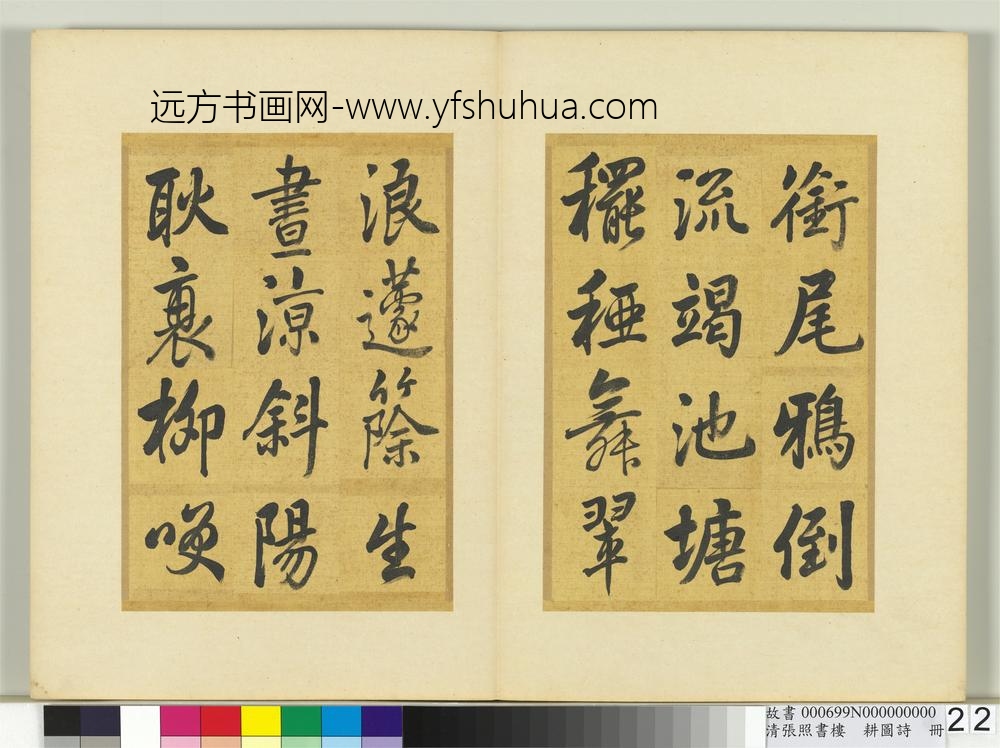 远方书画网-www.yfshuhua.com
銜尾鴉倒
流竭池塘
䆉稏舞翠
浪籧篨生
晝涼斜陽
耿衰柳
故書 000699N000000000
清張照書樓 耕圖詩 冊
22